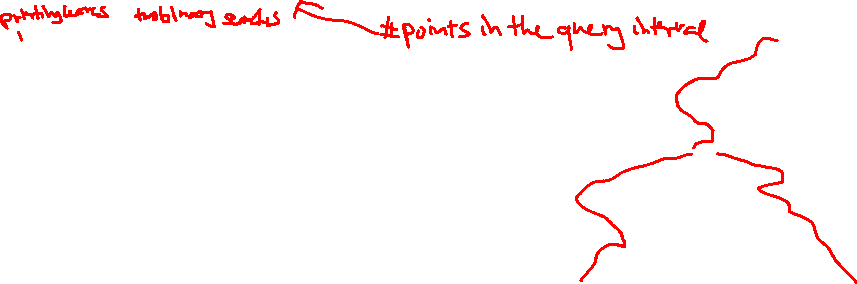 printing leaves two binary searches #points in the query interval